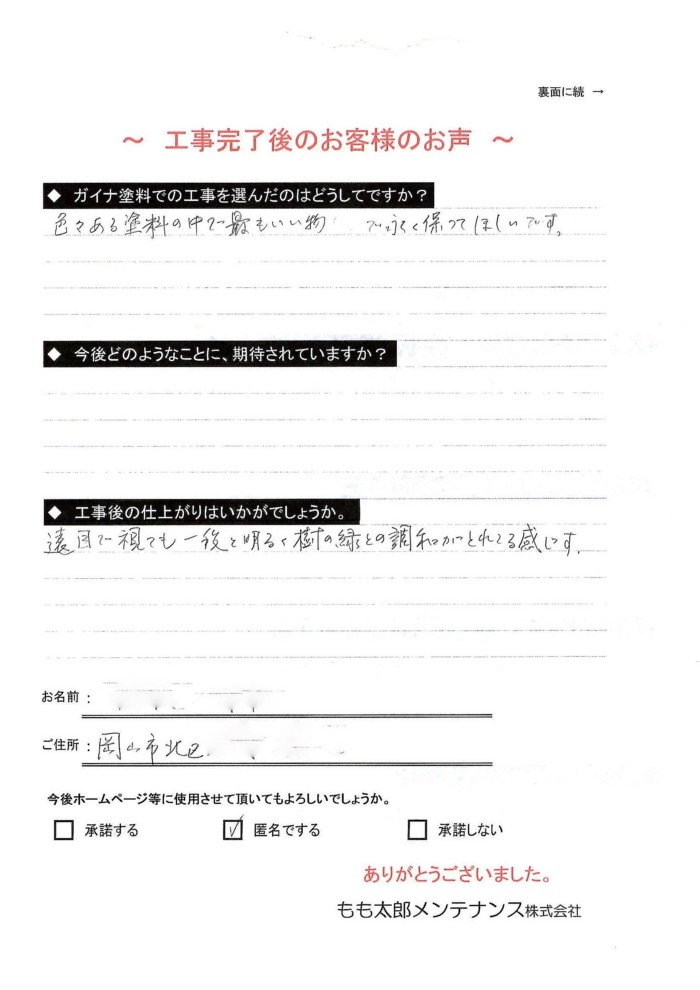 裏面に続 →
～ 工事完了後のお客様のお声 ～
◆ ガイナ塗料での工事を選んだのはどうしてですか？
色々ある塗料の中で最もいい物 で永く保ってほしいです。
◆ 今後どのようなことに、期待されていますか？
◆ 工事後の仕上がりはいかがでしょうか。
遠目で視ても一段と明るく樹の緑との調和がとれてる感じす。
お名前：
ご住所：岡山市北区
今後ホームページ等に使用させて頂いてもよろしいでしょうか。
□ 承諾する ☑ 匿名でする □ 承諾しない
ありがとうございました。
もも太郎メンテナンス株式会社